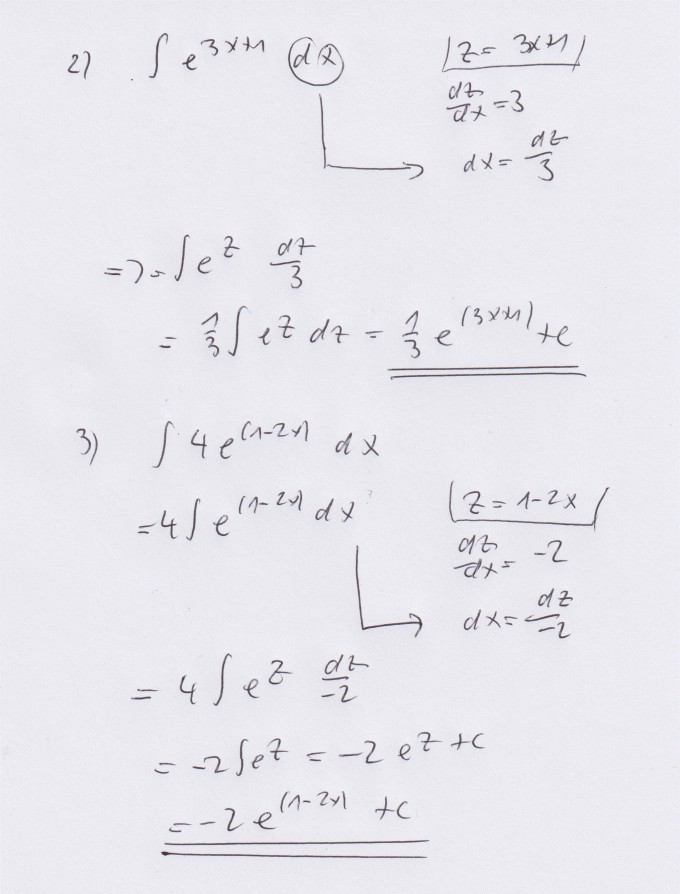 2) ∫ e^(3x+1) dx
z = 3x+1
dz/dx = 3
dx = dz/3
=> = ∫ e^z dz/3
= 1/3 ∫ e^z dz = 1/3 e^(3x+1) + c
3) ∫ 4 e^(1-2x) dx
= 4 ∫ e^(1-2x) dx
z = 1-2x
dz/dx = -2
dx = dz/-2
= 4 ∫ e^z dz/-2
= -2 ∫ e^z = -2 e^z + c
= -2 e^(1-2x) + c